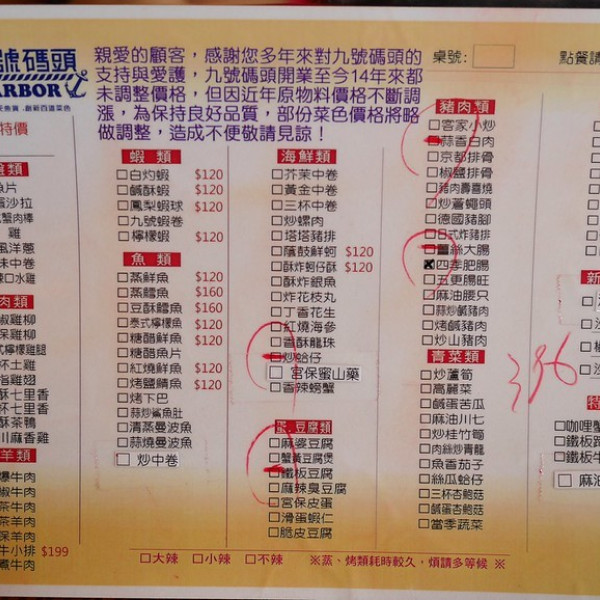 號碼頭
ARBOR
親愛的顧客，感謝您多年來對九號碼頭的
支持與愛護，九號碼頭開業至今14年來都
未調整價格，但因近年原物料價格不斷調
漲，為保持良好品質，部份菜色價格將略
做調整，造成不便敬請見諒！
桌號：
點餐請
特價
魚片
沙拉
蟹肉棒
雞
風洋蔥
味中卷
口水雞
肉類
椒雞柳
保雞柳
式檸檬雞腿
杯土雞
指雞翅
酥七里香
杯七里香
酥茶鴨
川麻香雞
羊類
爆牛肉
椒牛肉
茶牛肉
茶羊肉
保羊肉
牛小排 $199
煮牛肉
蝦 類
□白灼蝦 $120
□鹹酥蝦 $120
□鳳梨蝦球 $120
□九號蝦卷
□檸檬蝦 $120
魚 類
□蒸鮮魚 $120
□蒸鱈魚 $160
□豆酥鱈魚 $160
□泰式檸檬魚 $120
□糖醋鮮魚 $120
□糖醋魚片
□紅燒鮮魚 $120
□烤鹽鯖魚 $120
□烤下巴
□蒜炒鯊魚肚
□清蒸曼波魚
□蒜燒曼波魚
□ 炒中卷
海鮮類
□芥茉中卷
□黃金中卷
□三杯中卷
□炒螺肉
□塔塔豬排
□蔭鼓鮮蚵 $120
□酥炸蚵仔酥 $120
□酥炸銀魚
□炸花枝丸
□丁香花生
□紅燒海參
□香酥龍珠
□炒蛤仔
□ 宮保蜜山藥
□香辣螃蟹
蛋.豆腐類
□麻婆豆腐
□蟹黃豆腐煲
□鐵板豆腐
□麻辣臭豆腐
□宮保皮蛋
□滑蛋蝦仁
□脆皮豆腐
豬肉類
□客家小炒
□蒜香白肉
□京都排骨
□椒鹽排骨
□豬肉壽喜燒
□炒蒼蠅頭
□德國豬腳
□日式炸豬排
□薑絲大腸
□四季肥腸
□五更腸旺
□麻油腰只
□蒜炒鹹豬肉
□烤鹹豬肉
□炒山豬肉
青菜類
□炒蘆筍
□高麗菜
□鹹蛋苦瓜
□麻油川七
□炒桂竹筍
□肉絲炒青龍
□魚香茄子
□絲瓜蛤仔
□三杯杏鮑菇
□鹹蛋杏鮑菇
□當季蔬菜
396
新
特
□咖哩蟹
□鐵板
□鐵板牛
□ 麻油
□大辣 □小辣 □不辣 ※蒸、烤類耗時較久，煩請多等候 ※